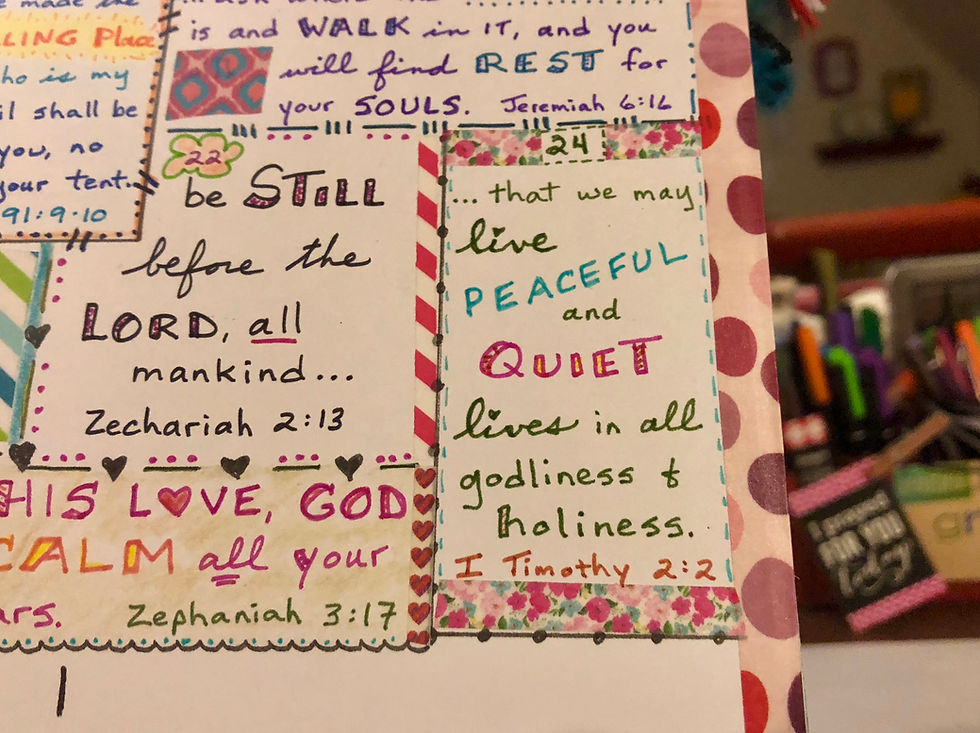 made the
LLING Place
ho is my
il shall be
you, no
your tent.
91:9-10
is and WALK in IT, and you
will find REST for
your SOULS. Jeremiah 6:16
22
be STILL
before the
LORD, all
mankind...
Zechariah 2:13
HIS LOVE, GOD
CALM all your
ars. Zephaniah 3:17
24
... that we may
live
PEACEFUL
and
QUIET
lives in all
godliness &
holiness.
I Timothy 2:2
FOR YOU